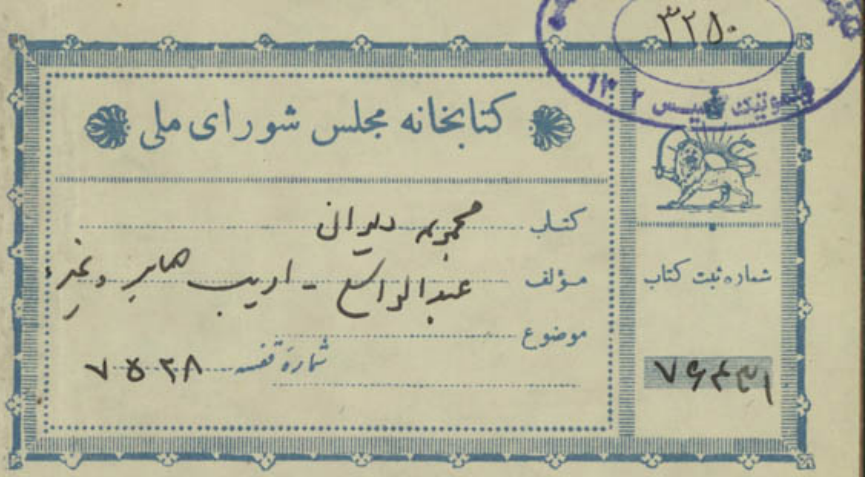 ۳۲۵۰
کتابخانه مجلس شورای ملی
کتاب مجموعه دیوان
مؤلف عبدالواسع - ادیب صابر و غیره
موضوع
شماره قفسه ۷۵۲۸
شماره ثبت کتاب